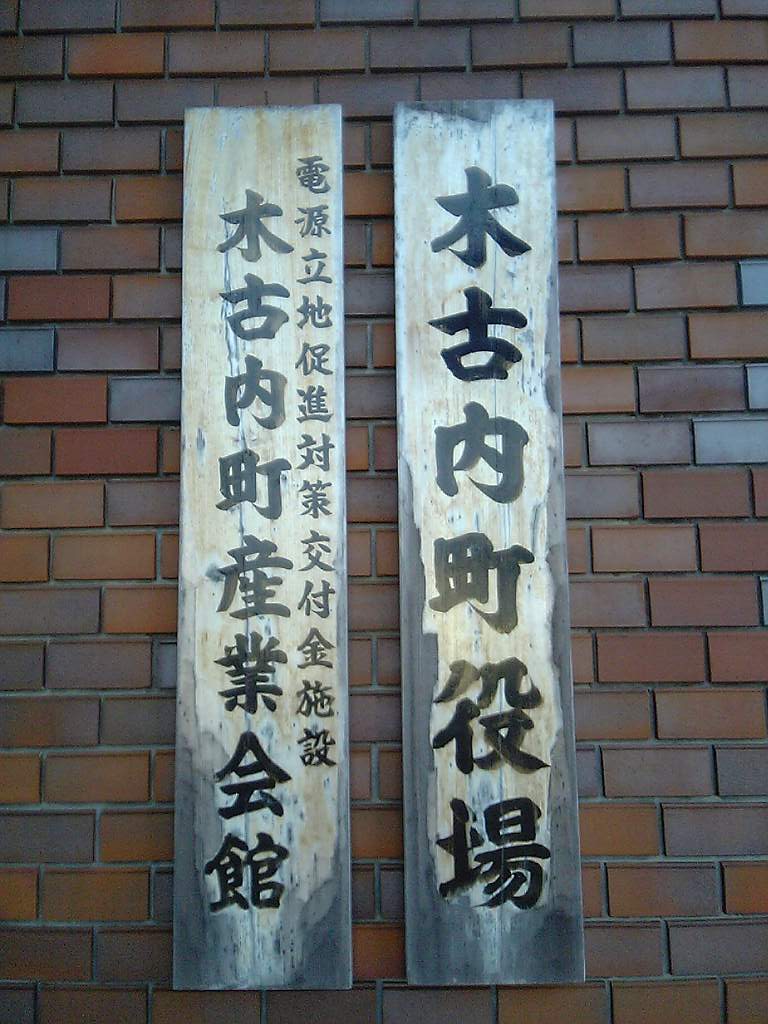 木古内町役場
電源立地促進対策交付金施設
木古内町産業会館